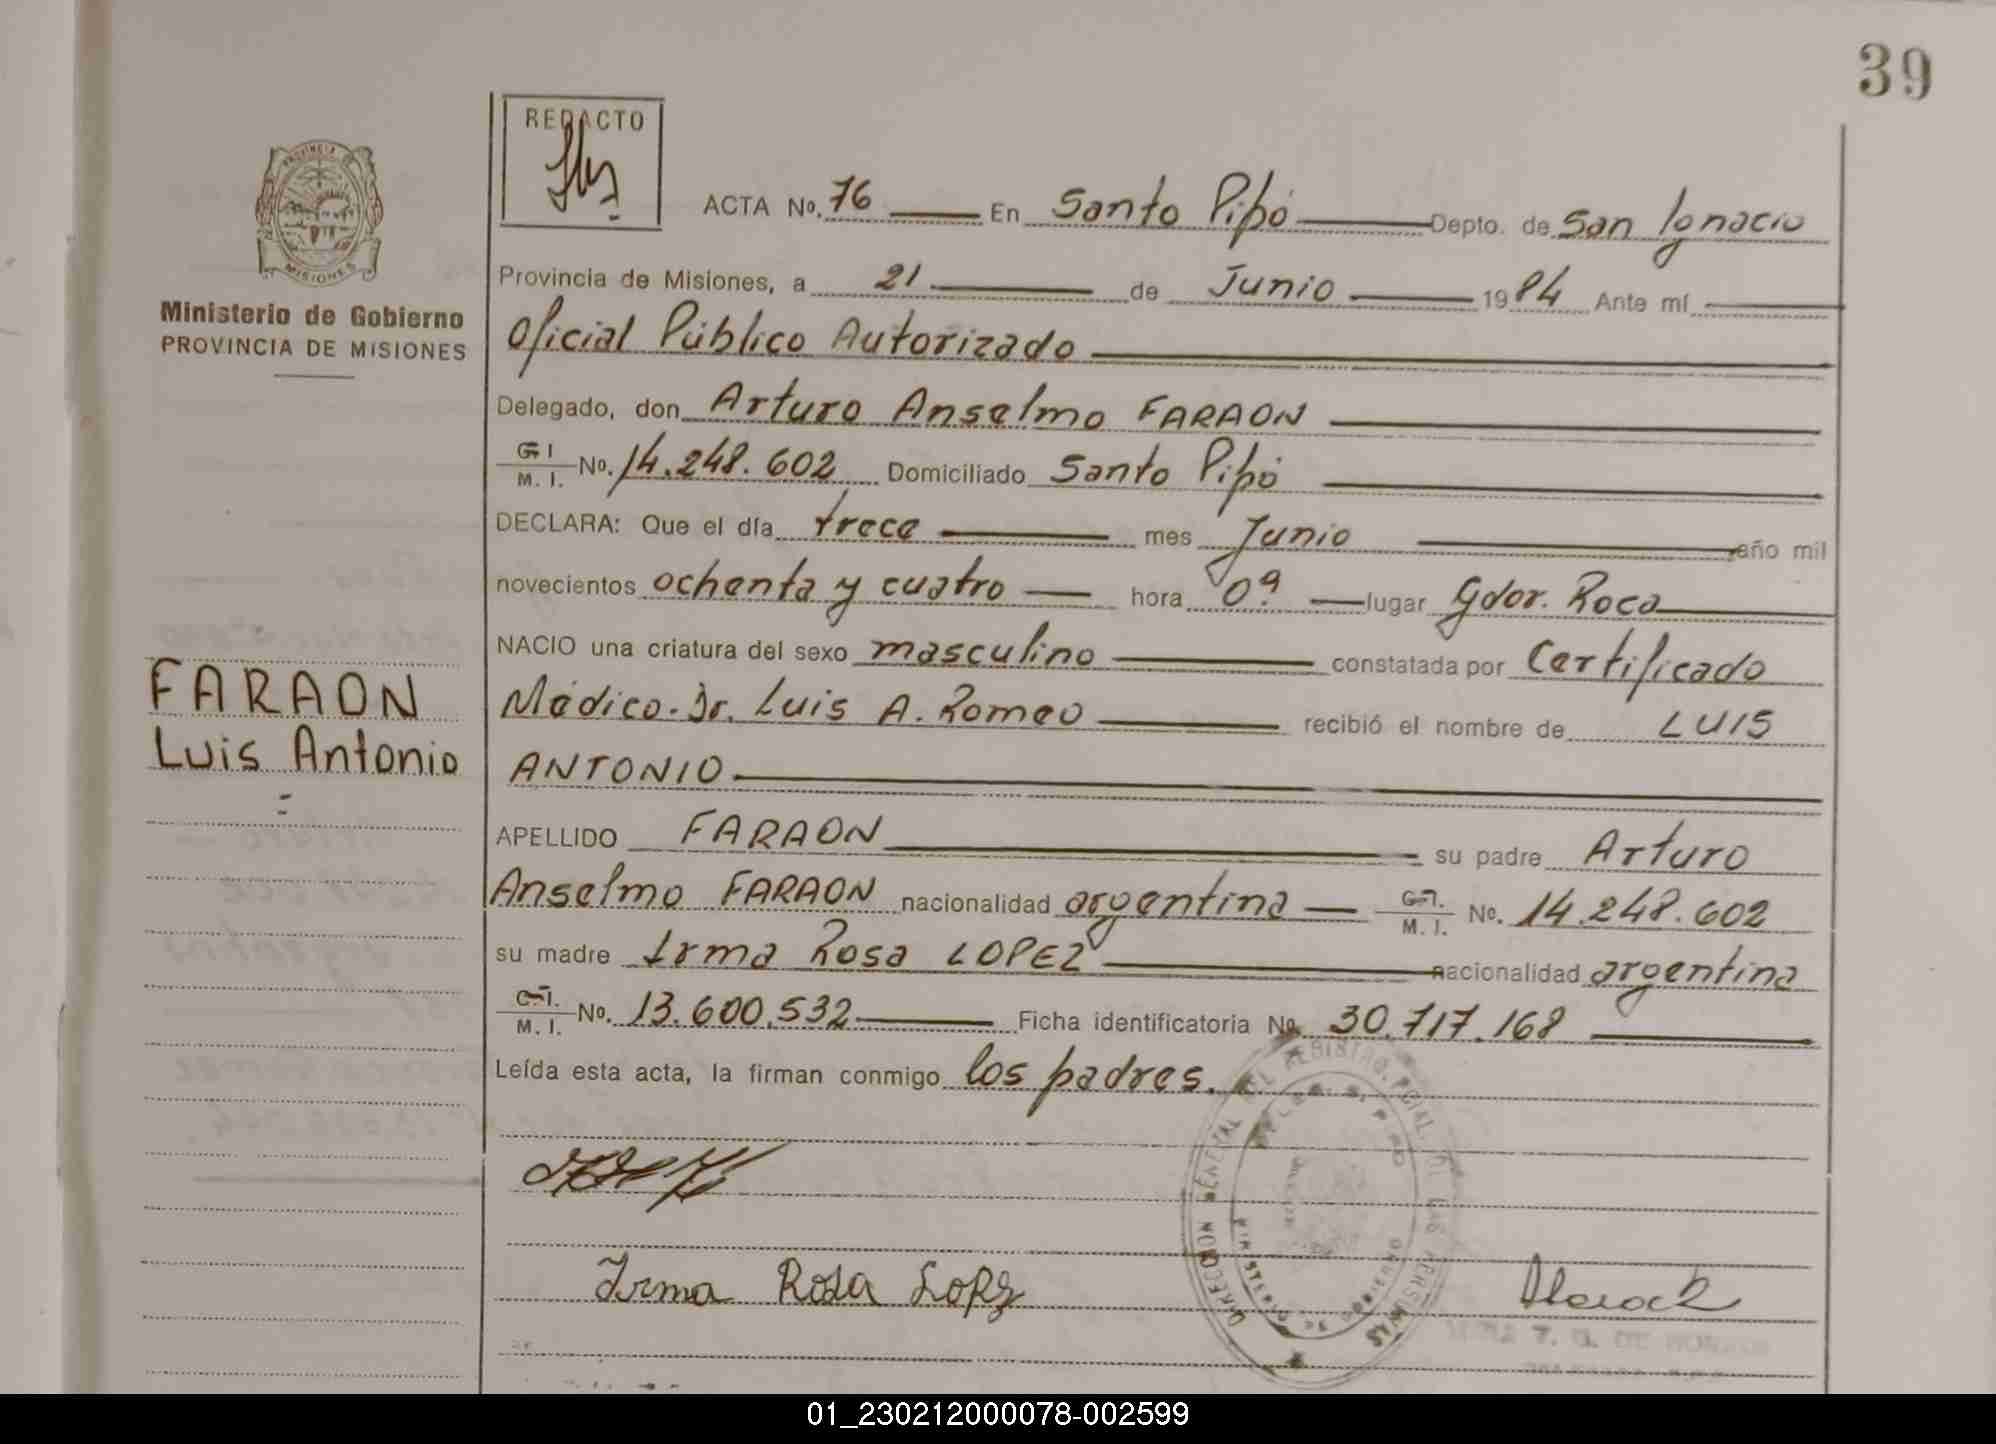 39
REDACTO
PROVINCIA DE
MISIONES
Ministerio de Gobierno
PROVINCIA DE MISIONES
FARAON
Luis Antonio
ACTA No. 76 En Santo Pipó Depto. de San Ignacio
Provincia de Misiones, a 21 de Junio 1984 Ante mí
Oficial Público Autorizado
Delegado, don Arturo Anselmo FARAON
C. I. M. I. No. 14.248.602 Domiciliado Santo Pipó
DECLARA: Que el día trece mes Junio año mil
novecientos ochenta y cuatro hora 0ª lugar Gdor. Roca
NACIO una criatura del sexo masculino constatada por Certificado
Médico. Dr. Luis A. Romeo recibió el nombre de LUIS
ANTONIO
APELLIDO FARAON su padre Arturo
Anselmo FARAON nacionalidad argentina C. I. M. I. No. 14.248.602
su madre Irma Rosa LOPEZ nacionalidad argentina
C. I. M. I. No. 13.600.532 Ficha identificatoria No. 30.717.168
Leída esta acta, la firman conmigo los padres.
Irma Rosa Lopez
01_230212000078-002599